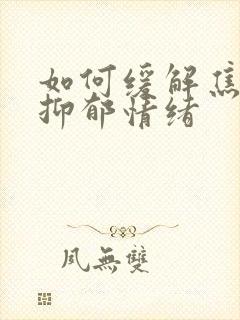 如何缓解焦
抑郁情绪
凤無雙